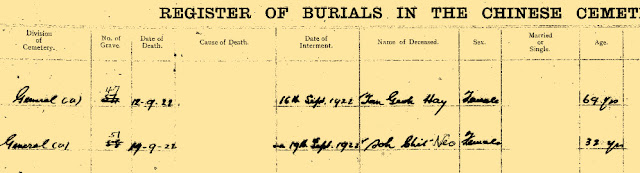 REGISTER OF BURIALS IN THE CHINESE CEMET
Division of Cemetery. No. of Grave. Date of Death. Cause of Death. Date of Interment. Name of Deceased. Sex. Married or Single. Age.
General (A) 47 12-9-22 16th Sept. 1922 Tan Geok Hay Female 69 yrs
General (A) 51 19-9-22 19th Sept. 1922 Soh Chit Neo Female 32 yrs